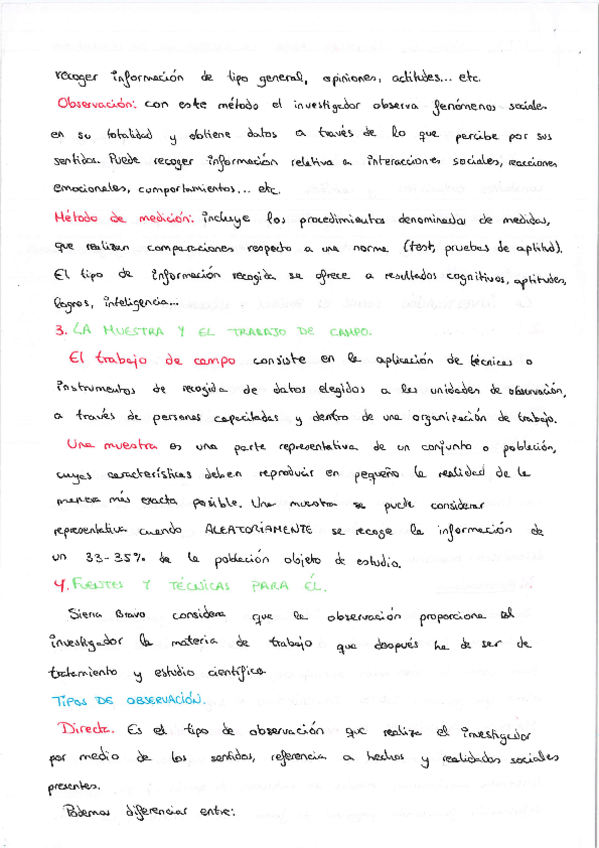 recoger información de tipo general, opiniones, actitudes... etc.
Observación: con este método el investigador observa fenómenos sociales
en su totalidad y obtiene datos a través de lo que percibe por sus
sentidos. Puede recoger información relativa a interacciones sociales, reacciones
emocionales, comportamientos... etc.
Método de medición: incluye los procedimientos denominados de medidas,
que realizan comparaciones respecto a una norma (test, pruebas de aptitud).
El tipo de información recogida se ofrece a resultados cognitivos, aptitudes,
logros, inteligencia...
3. LA MUESTRA Y EL TRABAJO DE CAMPO.
El trabajo de campo consiste en la aplicación de técnicas o
instrumentos de recogida de datos elegidos a las unidades de observación,
a través de personas capacitadas y dentro de una organización de trabajo.
Una muestra es una parte representativa de un conjunto o población,
cuyas características deben reproducir en pequeño la realidad de la
manera más exacta posible. Una muestra se puede considerar
representativa cuando ALEATORIAMENTE se recoge la información de
un 33-35% de la población objeto de estudio.
4. FUENTES Y TÉCNICAS PARA ÉL.
Sierra Bravo considera que la observación proporciona al
investigador la materia de trabajo que después ha de ser de
tratamiento y estudio científico.
TIPOS DE OBSERVACIÓN.
Directa. Es el tipo de observación que realiza el investigador
por medio de los sentidos, referencia a hechos y realidades sociales
presentes.
Podemos diferenciar entre: